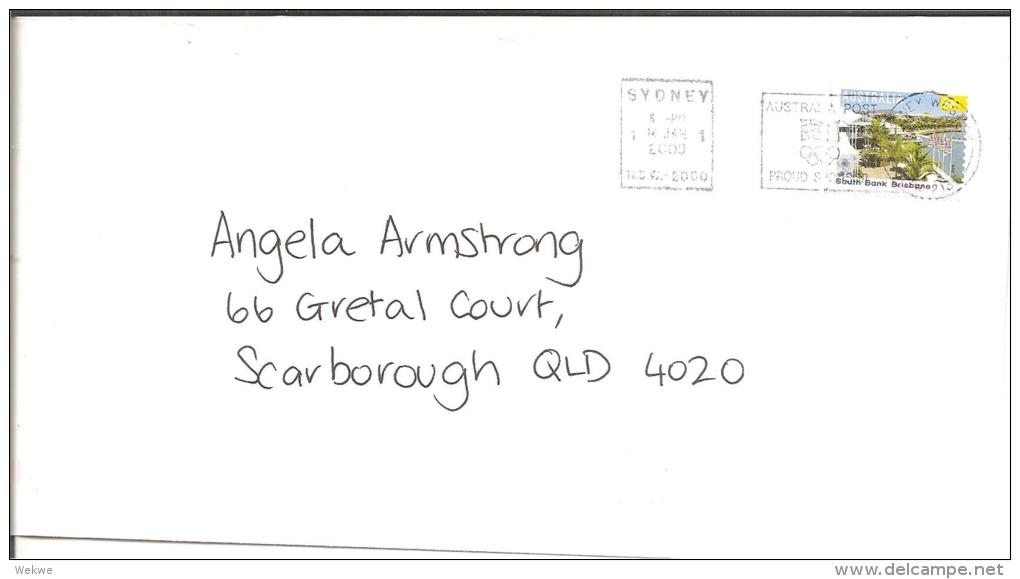 SYDNEY
6 - PM
1 14 JAN 1
2000
N.S.W.-2000
AUSTRALIA POST
PROUD
AUSTRALIA
South Bank Brisbane
Angela Armstrong
66 Gretal Court,
Scarborough QLD 4020
Wekwe
www.delcampe.net